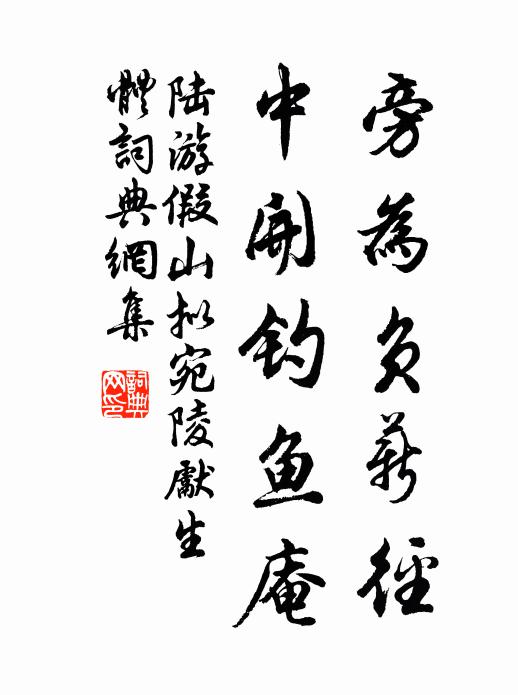 旁為負薪徑
中開釣鱼庵
陆游假山拟宛陵獻生
體詞典網集
詞典网印